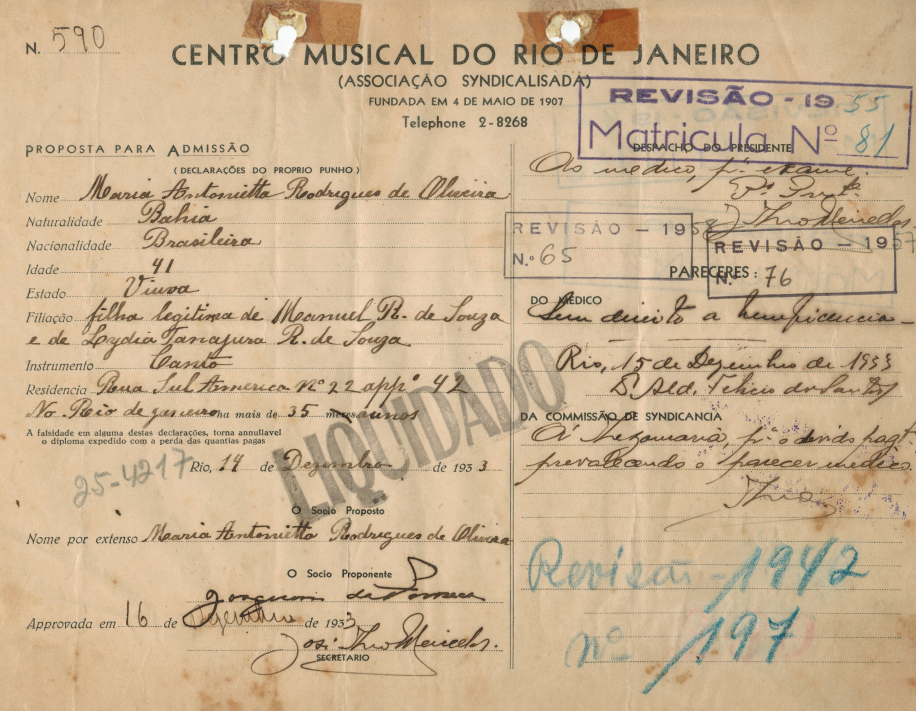 N. 590
CENTRO MUSICAL DO RIO DE JANEIRO
(ASSOCIAÇÃO SYNDICALISADA)
FUNDADA EM 4 DE MAIO DE 1907
Telephone 2-8268
REVISÃO - 1955
Matricula Nº 81
PROPOSTA PARA ADMISSÃO
(DECLARAÇÕES DO PROPRIO PUNHO)
Nome Maria Antonietta Rodrigues de Oliveira
Naturalidade Bahia
Nacionalidade Brasileira
Idade 41
Estado Viuva
Filiação filha legitima de Manuel R. de Souza
e de Lydia Tanajura R. de Souza
Instrumento Canto
Residencia Rua Sul America nº 22 appº 42
No Rio de janeiro ha mais de 35 mezes annos
A falsidade em alguma destas declarações, torna annullavel
o diploma expedido com a perda das quantias pagas
25-4217
Rio, 14 de Dezembro de 1933
LIQUIDADO
O Socio Proposto
Nome por extenso Maria Antonietta Rodrigues de Oliveira
O Socio Proponente
Approvada em 16 de de 1933
SECRETARIO
DESPACHO DO PRESIDENTE
Ao medico pª exame.
REVISÃO - 195
N.º 65
REVISÃO - 1957
N.º 76
PARECERES:
DO MÉDICO
Sem direito a beneficencia
Rio, 15 de Dezembro de 1933
DA COMMISSÃO DE SYNDICANCIA
Á thezouraria, pª o devido pagt
prevalecendo o parecer medico.
Revisão - 1942
nº 197